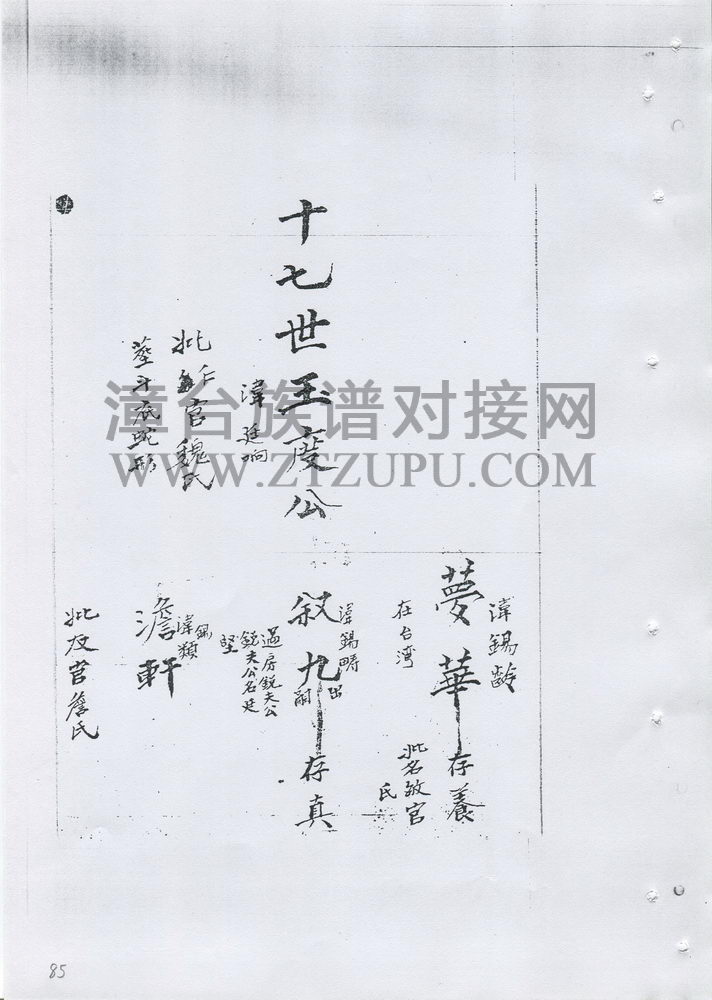 十七世玉度公
諱廷响
妣乍官魏氏
塟斗底蛇形
諱錫齡
夢華
存養
在台湾
妣名敬官
氏
諱錫疇
叙九
出嗣
存真
過房銳夫公
銳夫公名廷
堅
澹軒
諱錫類
妣及官詹氏
漳台族谱对接网
WWW.ZTZUPU.COM
85